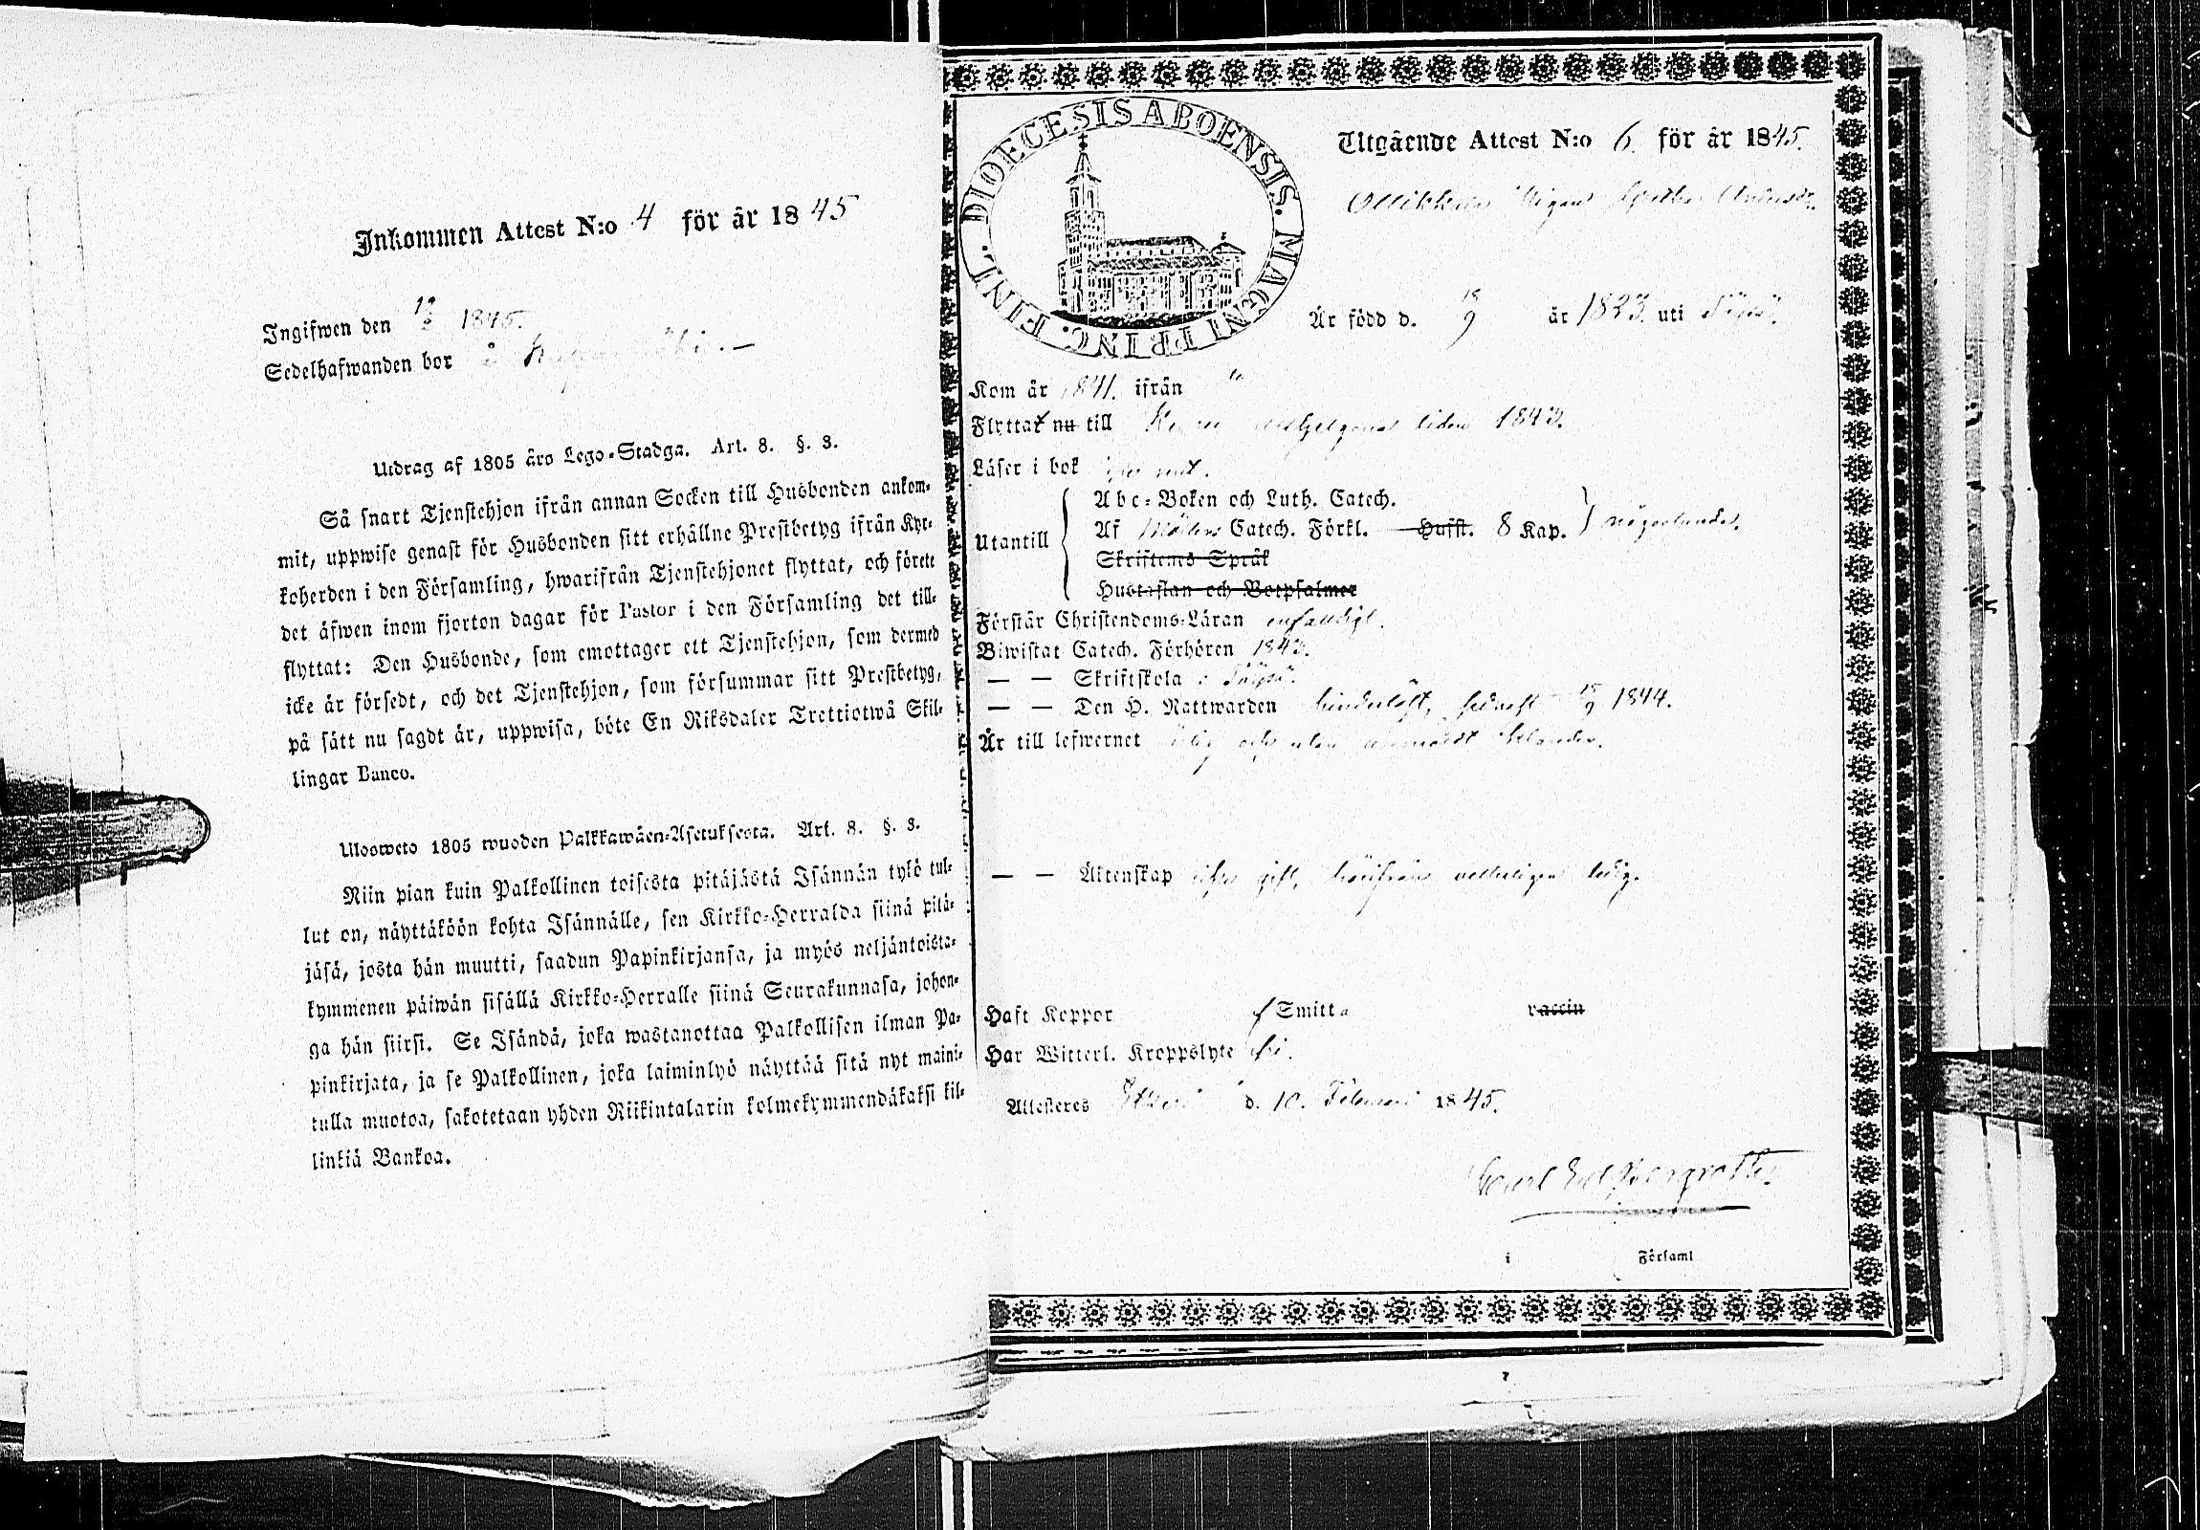 Inkommen Attest N:o 4 för år 1845
Ingifwen den 1845.
Sedelhafwanden bor å
Utdrag af 1805 års Lego-Stadga. Art. 8. §. 3.
Så snart Tjenstehjon ifrån annan Socken till Husbonden ankom-
mit, uppwise genast för Husbonden sitt erhållne Prestbetyg ifrån Kyr-
koherden i den Församling, hwarifrån Tjenstehjonet flyttat, och förete
det äfwen inom fjorton dagar för Pastor i den Församling det till-
flyttat: Den Husbonde, som emottager ett Tjenstehjon, som dermed
icke är försedt, och det Tjenstehjon, som försummar sitt Prestbetyg,
på sätt nu sagdt är, uppwisa, böte En Riksdaler Trettiotwå Skil-
lingar Banco.
Ulosweto 1805 wuoden Palkkawäen-Asetuksesta. Art. 8. §. 3.
Niin pian kuin Palkollinen toisesta pitäjästä Isännän tykö tul-
lut on, näyttäköön kohta Isännälle, sen Kirkko-Herralda siinä pitä-
jäsä, josta hän muutti, saadun Papinkirjansa, ja myös neljäntoista-
kymmenen päiwän sisällä Kirkko-Herralle siinä Seurakunnasa, johon-
ga hän siirsi. Se Isändä, joka wastanottaa Palkollisen ilman Pa-
pinkirjata, ja se Palkollinen, joka laiminlyö näyttää sitä nyt maini-
tulla muotoa, sakotetaan yhden Riikintalarin kolmekymmendäkaksi kil-
linkiä Bankoa.
DIOECESIS ABOENSIS. MAGNI PRINC. FINL.
Utgående Attest N:o 6 för år 1845.
Är född d. 18/9 år 1823 uti
Kom år 1841. ifrån
Flyttat nu till tiden 1843.
Läser i bok
Abc-Boken och Luth. Catech.
Utantill Af Catech. Förkl. Husst. 8 Kap. någorlunda.
Skriftenes Språk
Hustaflan och Botpsalmer
Förstår Christendoms-Läran enfaldigt.
Biwistat Catech. Förhören 1843.
— — Skriftskola i
— — Den H. Nattwarden senast 15/9 1844.
Är till lefwernet och utan
— — Äktenskap gift, ledig.
Haft Koppor Smitta vaccin
Har Witterl. Kroppslyte ej.
Attesteres d. 10. Februari 1845.
i Församl